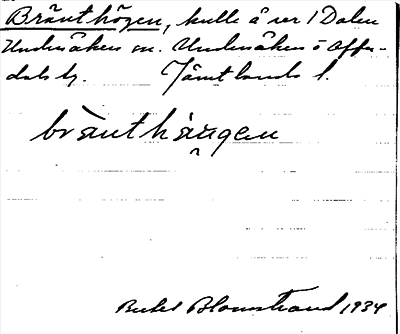 Bränthögen, kulle å ser i Dalen
Undersåkers sn. Undersåkers o Offer-
dals tg. Jämtlands l.
bräuthäägen
Bertel Blomstrand 1934